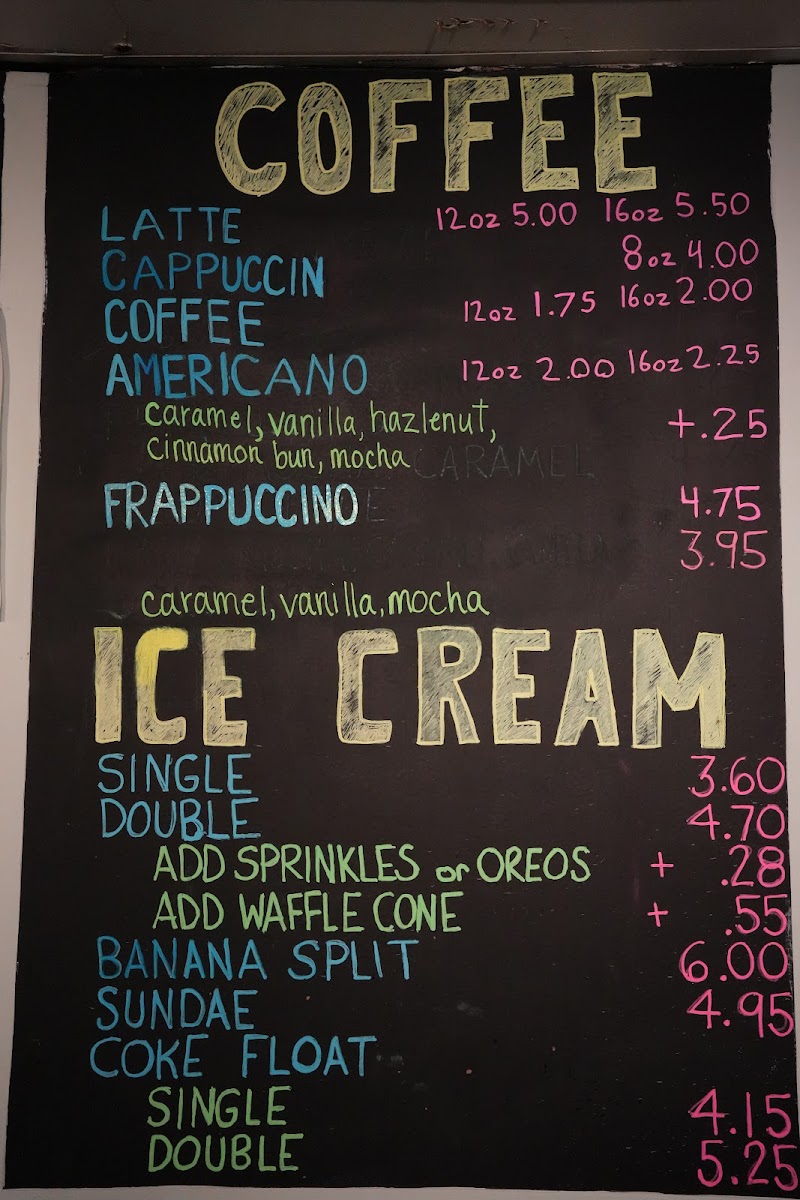 COFFEE
LATTE 12oz 5.00 16oz 5.50
CAPPUCCIN 8oz 4.00
COFFEE 12oz 1.75 16oz 2.00
AMERICANO 12oz 2.00 16oz 2.25
caramel, vanilla, hazlenut, +.25
cinnamon bun, mocha CARAMEL
FRAPPUCCINO E 4.75
3.95
caramel, vanilla, mocha
ICE CREAM
SINGLE 3.60
DOUBLE 4.70
ADD SPRINKLES or OREOS + .28
ADD WAFFLE CONE + .55
BANANA SPLIT 6.00
SUNDAE 4.95
COKE FLOAT
SINGLE 4.15
DOUBLE 5.25